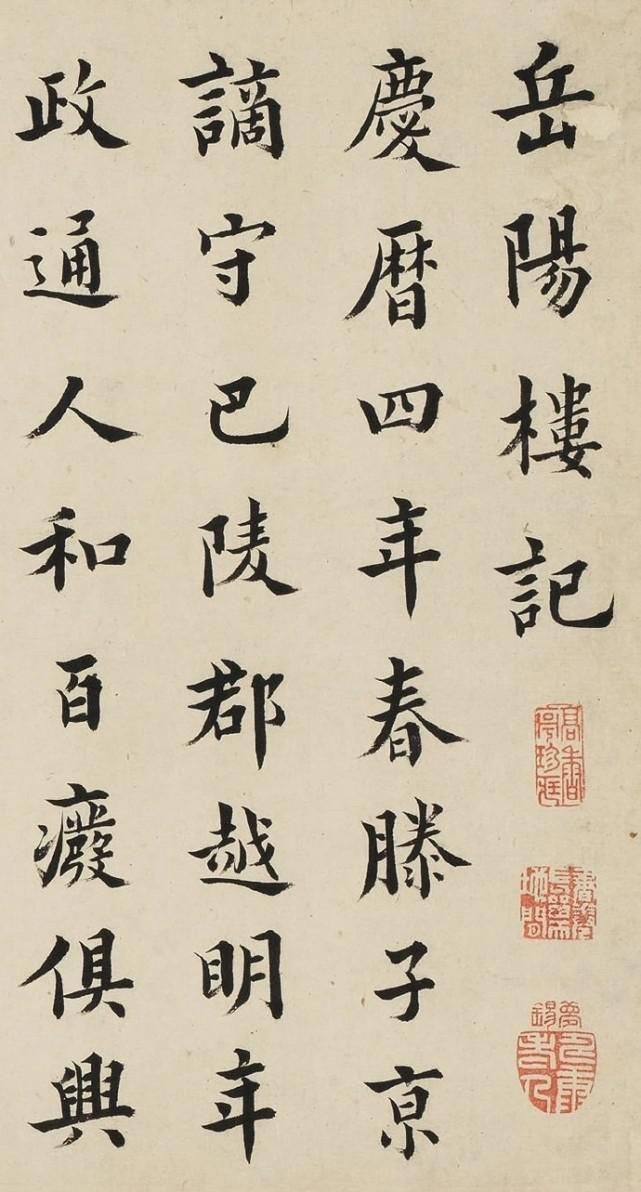 岳陽樓記
慶曆四年春滕子亰
謫守巴陵郡越明年
政通人和百癈俱興